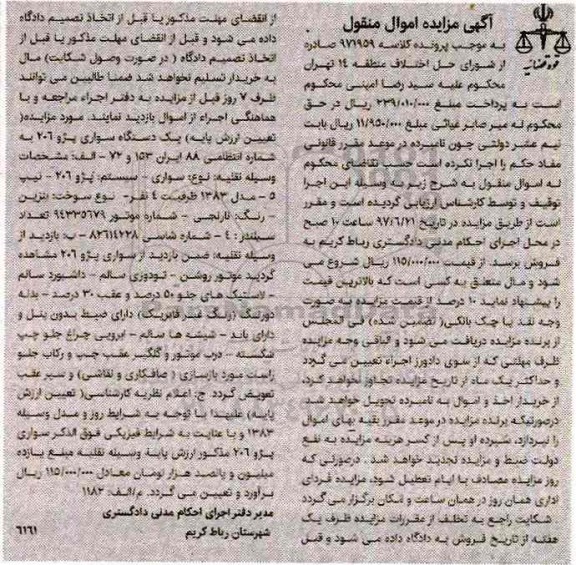 آگهی مزایده اموال منقول
به موجب پرونده کلاسه ۹۷۱۹۵۹ صادره
از شورای حل اختلاف منطقه ۱۴ تهران
محکوم علیه سید رضا امینی محکوم
است به پرداخت مبلغ ۲۳۹/۰۱۰/۰۰۰ ریال در حق
محکوم له میر صابر غیائی مبلغ ۱۱/۹۵۰/۰۰۰ ریال بابت
نیم عشر دولتی چون نامبرده در موعد مقرر قانونی
مفاد حکم را اجرا نکرده است حسب تقاضای محکوم
له اموال منقول به شرح زیر به وسیله این اجرا
توقیف و توسط کارشناس ارزیابی گردیده است و مقرر
است از طریق مزایده در تاریخ ۹۷/۶/۲۱ ساعت ۱۰ صبح
در محل اجرای احکام مدنی دادگستری رباط کریم به
فروش برسد. از قیمت ۱۱۵/۰۰۰/۰۰۰ ریال شروع می
شود و مال متعلق به کسی است که بالاترین قیمت
را پیشنهاد نماید ۱۰ درصد از قیمت مزایده به صورت
وجه نقد یا چک بانکی( تضمین شده) فی المجلس
از برنده مزایده دریافت می شود و الباقی وجه مزایده
ظرف مهلتی که از سوی دادورز اجراء تعیین می گردد
و حداکثر یک ماه از تاریخ مزایده تجاوز نخواهد کرد،
از خریدار اخذ و اموال به نامبرده تحویل خواهد شد
درصورتیکه برنده مزایده در موعد مقرر بقیه بهای اموال
را نپردازد، سپرده او پس از کسر هزینه مزایده به نفع
دولت ضبط و مزایده تجدید خواهد شد . درصورتی که
روز مزایده مصادف با ایام تعطیل شود، مزایده فردای
اداری همان روز در همان ساعت و مکان برگزار می گردد
. شکایت راجع به تخلف از مقررات مزایده ظرف یک
هفته از تاریخ فروش به دادگاه داده می شود و قبل
از انقضای مهلت مذکور یا قبل از اتخاذ تصمیم دادگاه
داده می شود و قبل از انقضای مهلت مذکور یا قبل از
اتخاذ تصمیم دادگاه ( در صورت وصول شکایت) مال
به خریدار تسلیم نخواهد شد ضمنا طالبین می توانند
ظرف ۷ روز قبل از مزایده به دفتر اجراء مراجعه و با
هماهنگی اجراء از اموال بازدید نمایند. مورد مزایده(
تعیین ارزش پایه) یک دستگاه سواری پژو ۲۰۶ به
شماره انتظامی ۸۸ ایران ۱۵۳ و ۷۲ - الف: مشخصات
وسیله نقلیه: نوع: سواری - سیستم: پژو ۲۰۶ - تیپ
۵ - مدل ۱۳۸۳ ظرفیت ۴ نفر- نوع سوخت: بنزین
- رنگ: نارنجی - شماره موتور ۹۴۳۳۵۶۷۹ تعداد
سیلندر : ۴ - شماره شاسی ۸۲۶۱۴۲۲۸ - ب: بازدید از
وسیله نقلیه: ضمن بازدید از سواری پژو ۲۰۶ مشاهده
گردید موتور روشن - تودوزی سالم - داشبورد سالم
- لاستیک های جلو ۵۰ درصد و عقب ۳۰ درصد - بدنه
دورنگ (رنگ غیر فابریک) دارای ضبط بدون پنل و
دارای باند - شیشه ها سالم - ابرویی چراغ جلو چپ
شکسته - درب موتور و گلگیر عقب چپ و رکاب جلو
راست مورد بازسازی ( صافکاری و نقاشی) و سپر عقب
تعویض گردد ج. اعلام نظریه کارشناسی( تعیین ارزش
پایه) علیهذا با توجه به شرایط روز و مدل وسیله
۱۳۸۳ و با عنایت به شرایط فیزیکی فوق الذکر سواری
پژو ۲۰۶ مذکور ارزش پایه وسیله نقلیه مبلغ یازده
میلیون و پانصد هزار تومان معادل ۱۱۵/۰۰۰/۰۰۰ ریال
برآورد و تعیین می گردد. م/الف: ۱۱۸۲
مدیر دفتر اجرای احکام مدنی دادگستری
شهرستان رباط کریم
۶۱۶۱